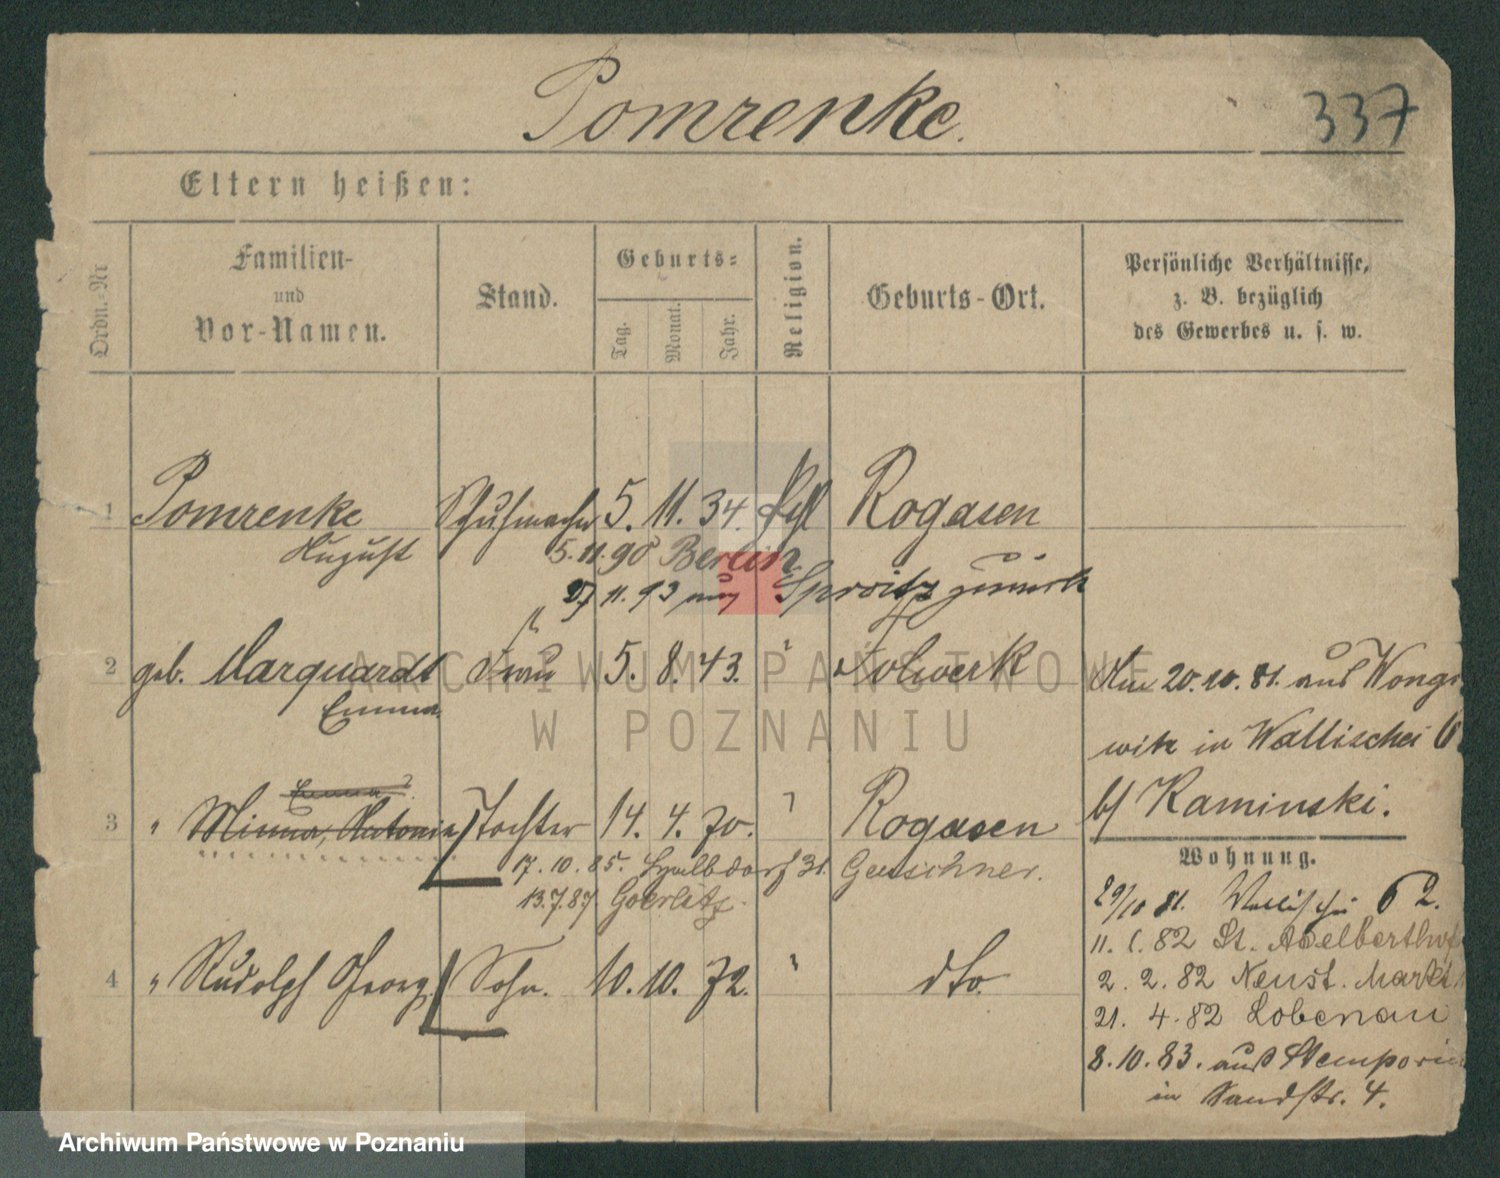 Pomrenke.
337
Eltern heißen:
Ordn.-Nr
Familien-
und
Vor-Namen.
Stand.
Geburts-
Tag.
Monat.
Jahr.
Religion.
Geburts-Ort.
Persönliche Verhältnisse,
z. B. bezüglich
des Gewerbes u. s. w.
1 Pomrenke Schuhmacher 5. 11. 34. Rogasen
August
5. 11. 90 Berlin
27 11. 93 aus zurück
2 geb. Marquardt Frau 5. 8. 43. " Folwerk
Emma
Am 20.10.81. aus Wongro
witz in Wallischei 6
b/ Kaminski.
Emma
3 " Minna, Antonie Tochter 14. 4. 70. " Rogasen
17. 10. 85. 31. Geuschner.
13.7.87 Goerlitz.
4 " Rudolph Georg. Sohn. 10. 10. 72. " dto.
Wohnung.
29/10 81. Wallischei 62.
11. 1. 82 St. Adelberthof
2. 2. 82 Neust. Markt
21. 4. 82 Lobenau
8. 10. 83. aus
in Sandstr. 4.
ARCHIWUM PAŃSTWOWE
W POZNANIU
Archiwum Państwowe w Poznaniu